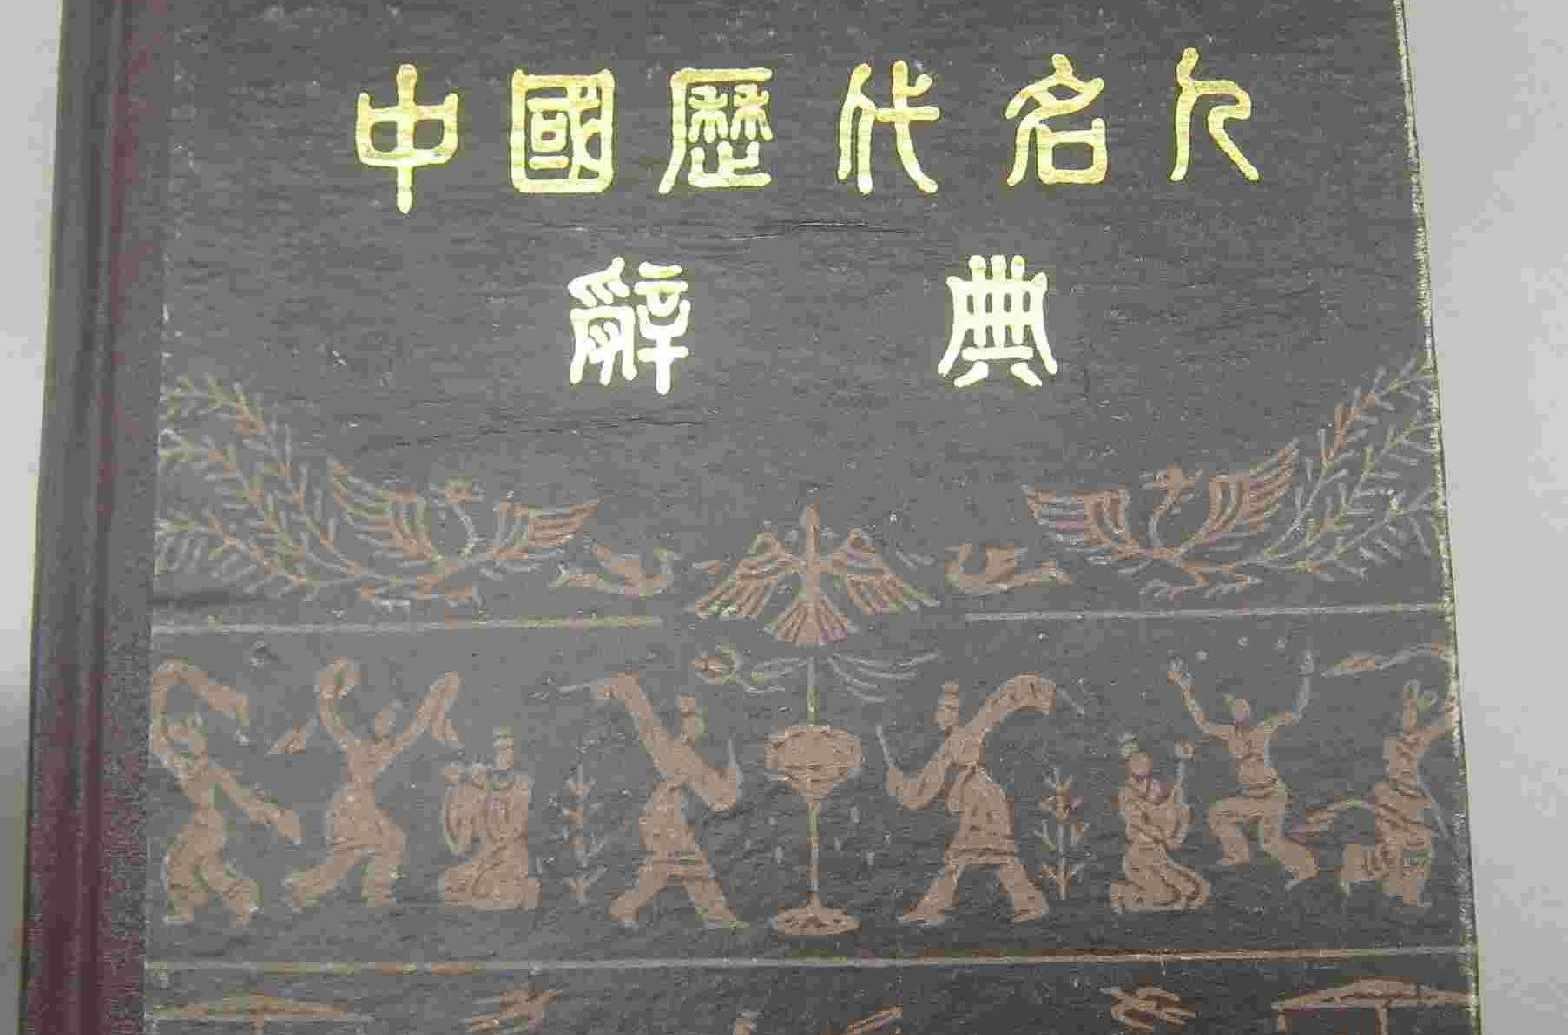 中國歷代名人
辭典